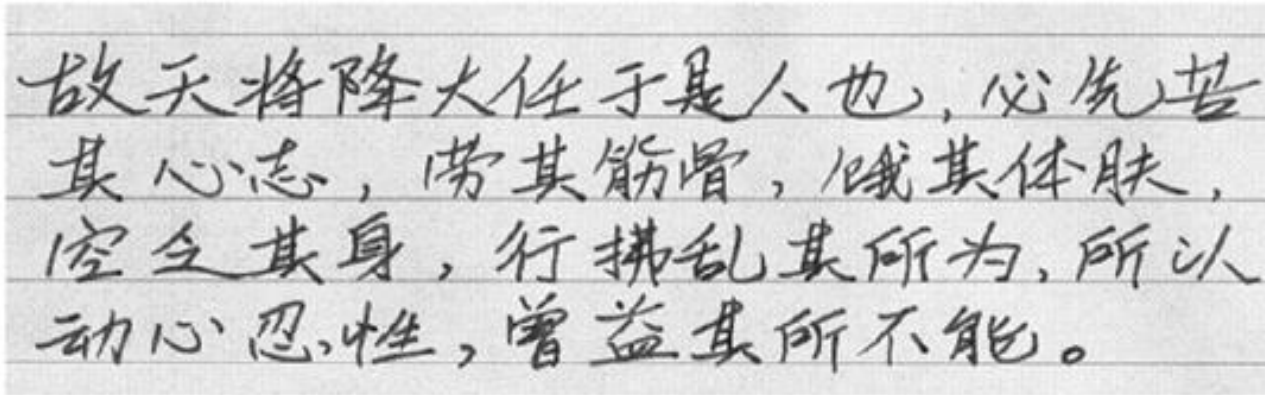 故天将降大任于是人也,必先苦
其心志,劳其筋骨,饿其体肤,
空乏其身,行拂乱其所为,所以
动心忍性,曾益其所不能。